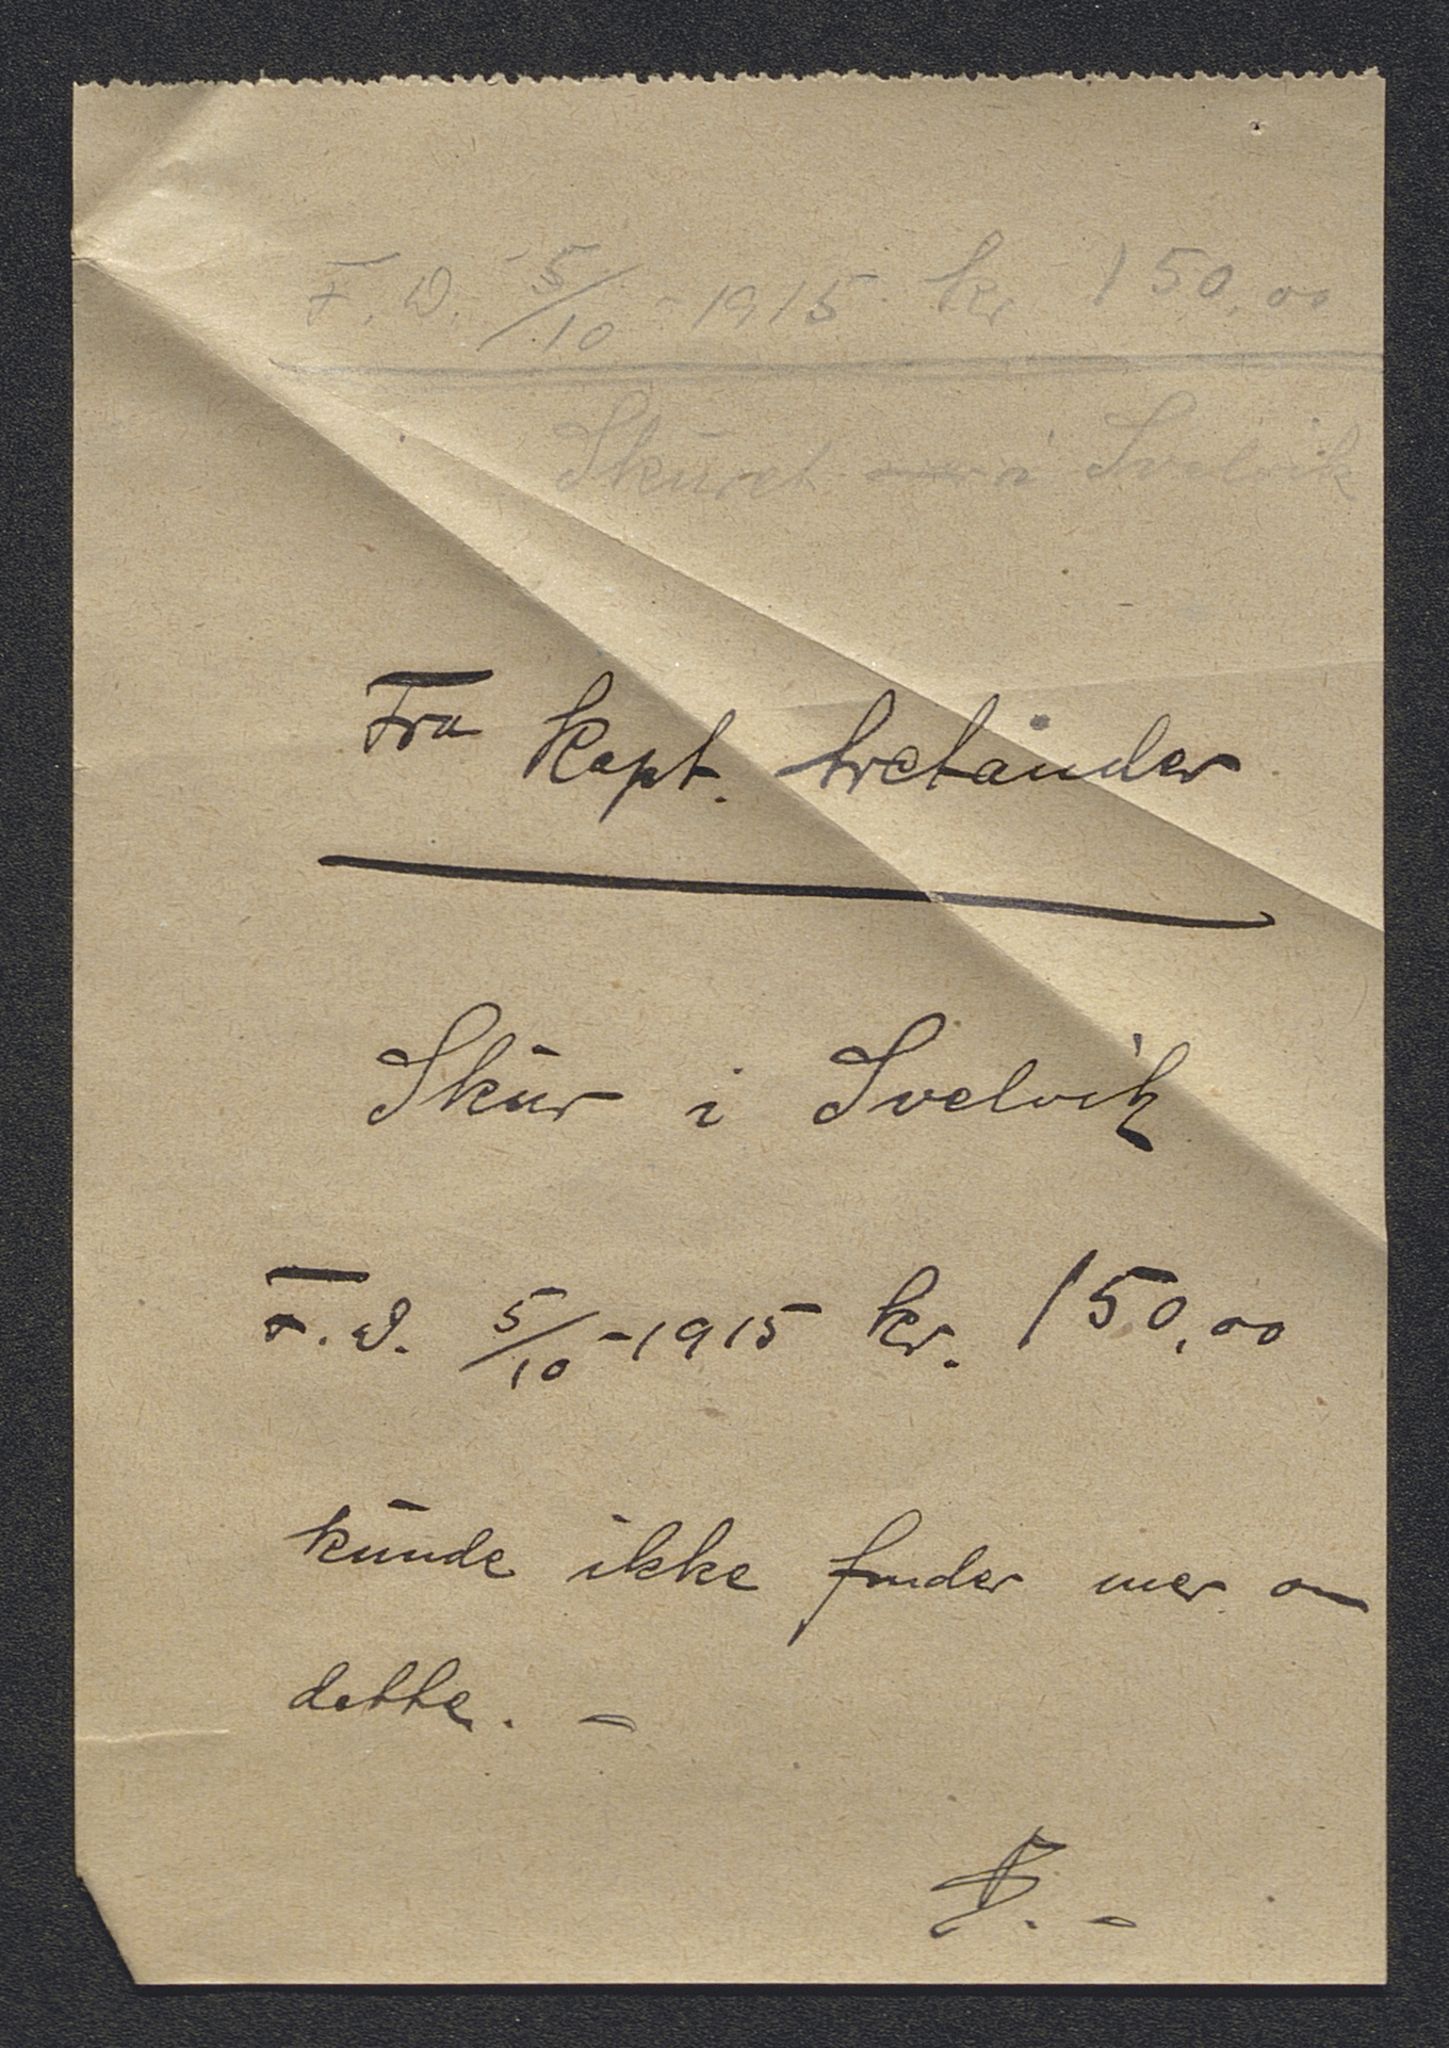 F.D. 5/10-1915 kr 150,00
Skuret i Svelvik
Fra Kapt. Aretander
Skur i Svelvik
F.D. 5/10-1915 kr. 150,00
kunde ikke finder mer om
dette. –